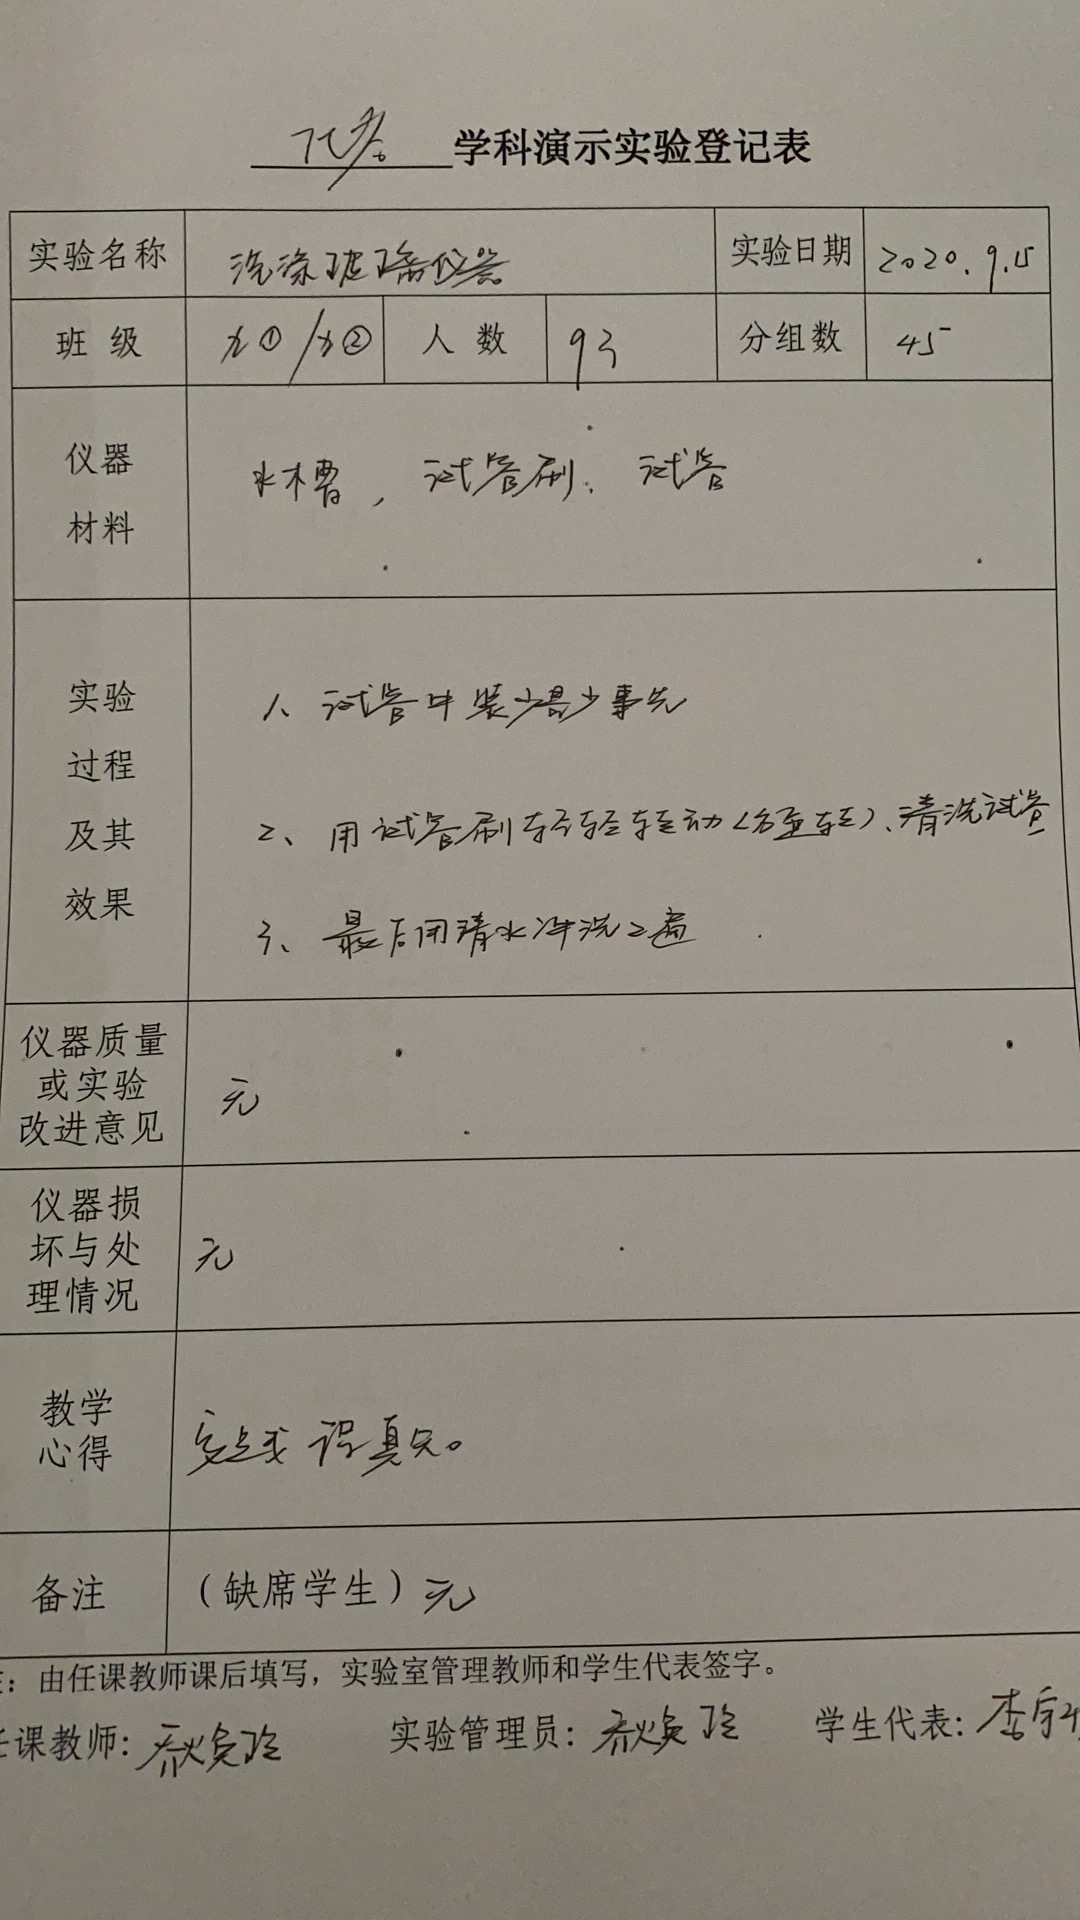 化学 学科演示实验登记表
实验名称 洗涤玻璃仪器 实验日期 2020.9.15
班 级 九①/九② 人 数 93 分组数 45
仪器
材料
水槽，试管刷、试管
实验
过程
及其
效果
1、试管中装少量
2、用试管刷轻轻转动、清洗试管
3、最后用清水冲洗2遍
仪器质量
或实验
改进意见
无
仪器损
坏与处
理情况
无
教学
心得
备注 （缺席学生）无
：由任课教师课后填写，实验室管理教师和学生代表签字。
课教师： 实验管理员： 学生代表：李